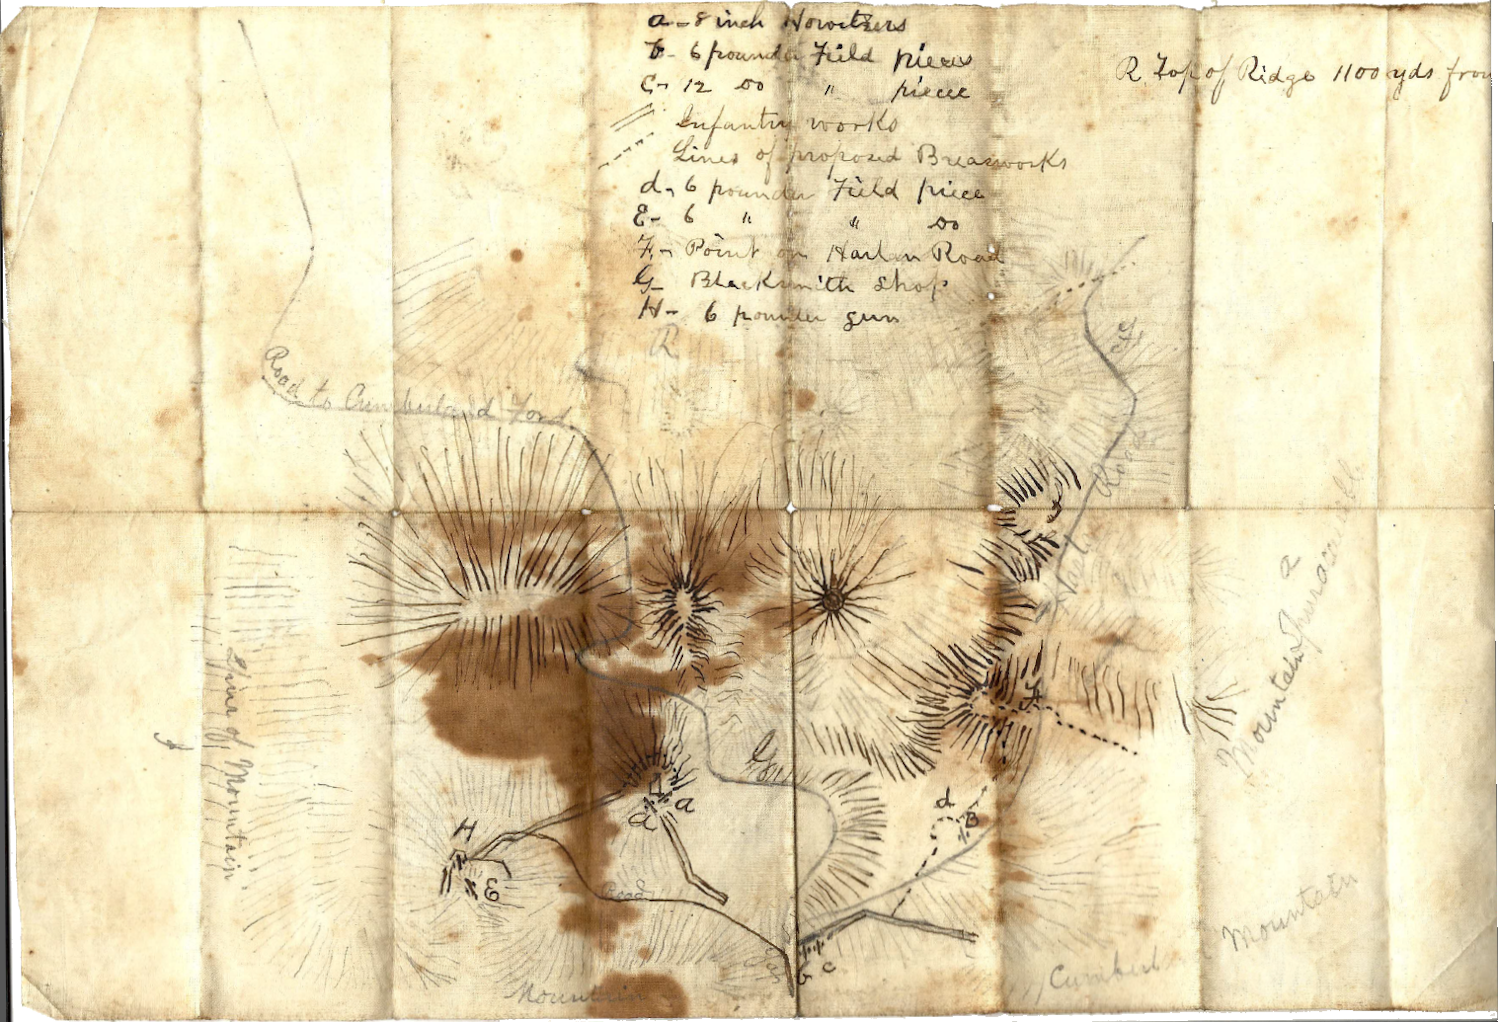 a - 8 inch Howitzers
b - 6 pounder Field pieces
R Top of Ridge 1100 yds from
C - 12 do " piece
Infantry works
Lines of proposed Breasworks
d - 6 pounder Field piece
E - 6 " " do
F - Point on Harlan Road
G - Blacksmith Shop
H - 6 pounder gun
R
Road to Cumberland Ford
Road
a
Mountain
Spine of Mountain
G
H
E
a
a
d
B
Road
Gap
b c
Mountain
Cumberl
Mountain